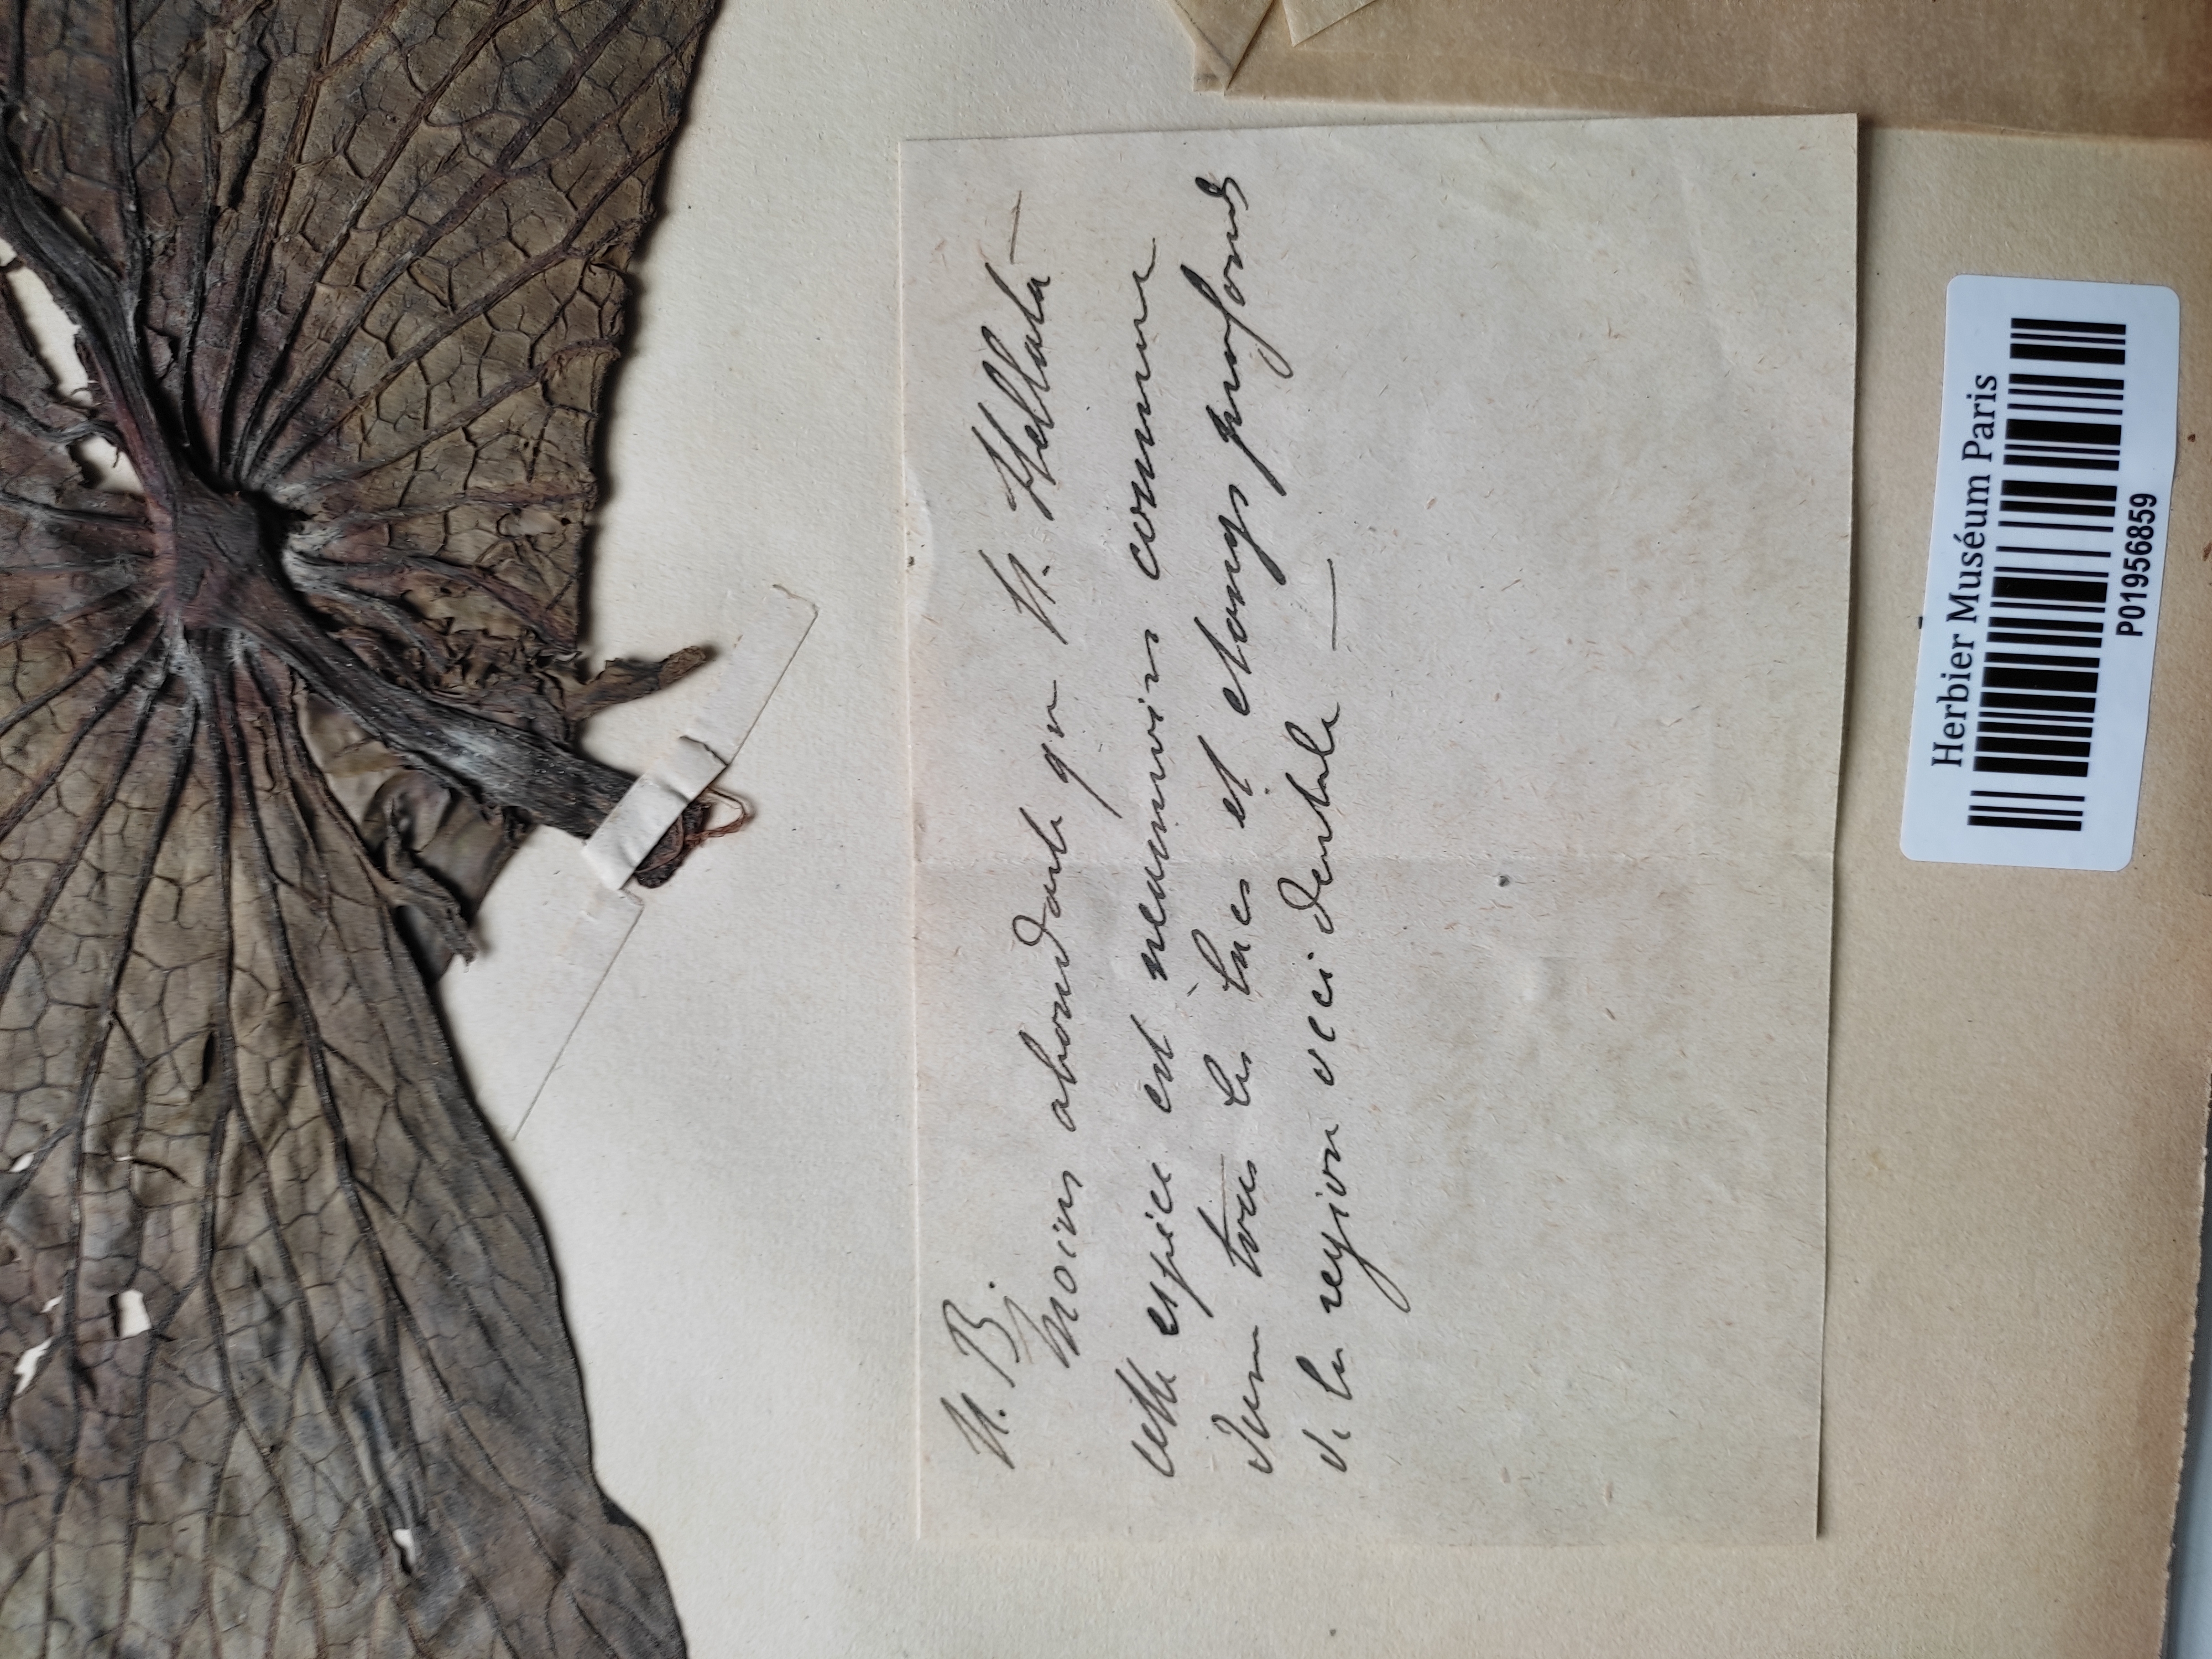 N. B.
Moins abondante que N. Stellata —
cette espèce est neanmoins commune
dans tous les lacs et etangs profonds
de la region occidentale —
Herbier Muséum Paris
P01956859